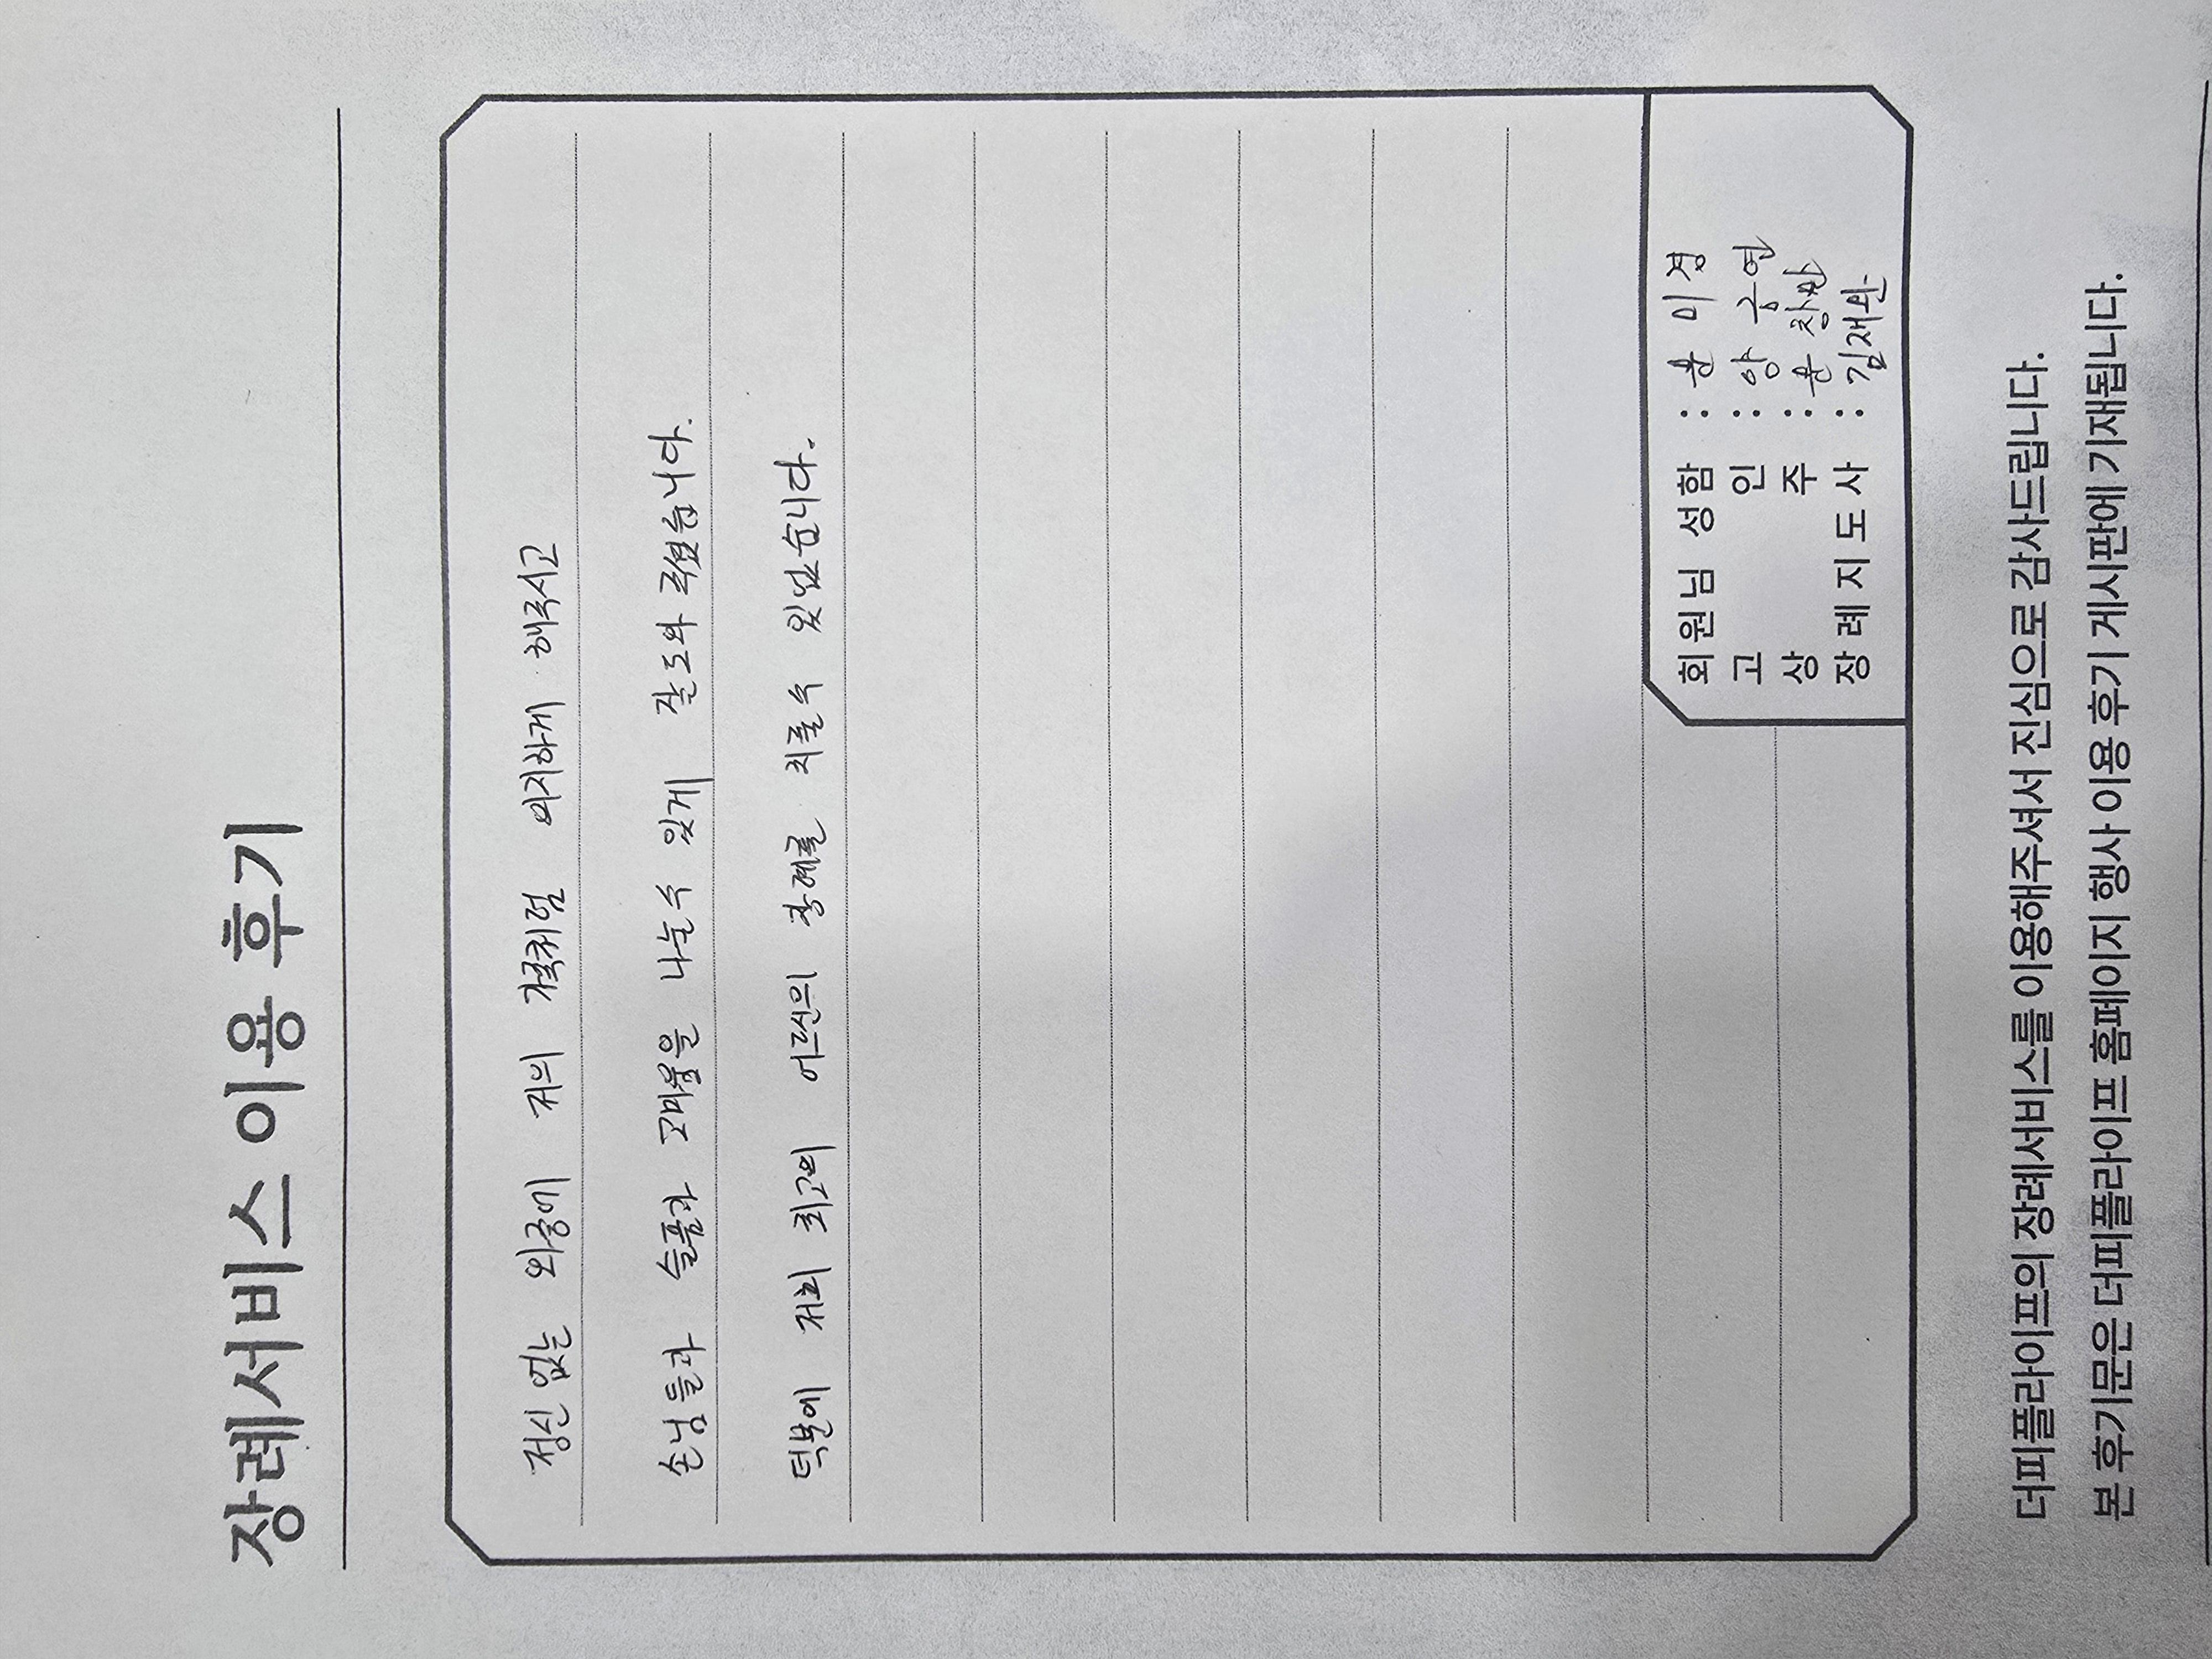 장례서비스 이용 후기
정신 없는 와중에 저의 가족처럼 의지하게 해주시고
손님들과 슬픔과 고마움을 나눌수 있게 잘 도와 주셨습니다.
덕분에 저희 최고의 어르신의 장례를 치를수 있었습니다.
회원님 성함 : 윤미경
고 인 : 양금연
상 주 : 윤창
장례지도사 : 김재완
더피플라이프의 장례서비스를 이용해주셔서 진심으로 감사드립니다.
본 후기문은 더피플라이프 홈페이지 행사 이용 후기 게시판에 기재됩니다.